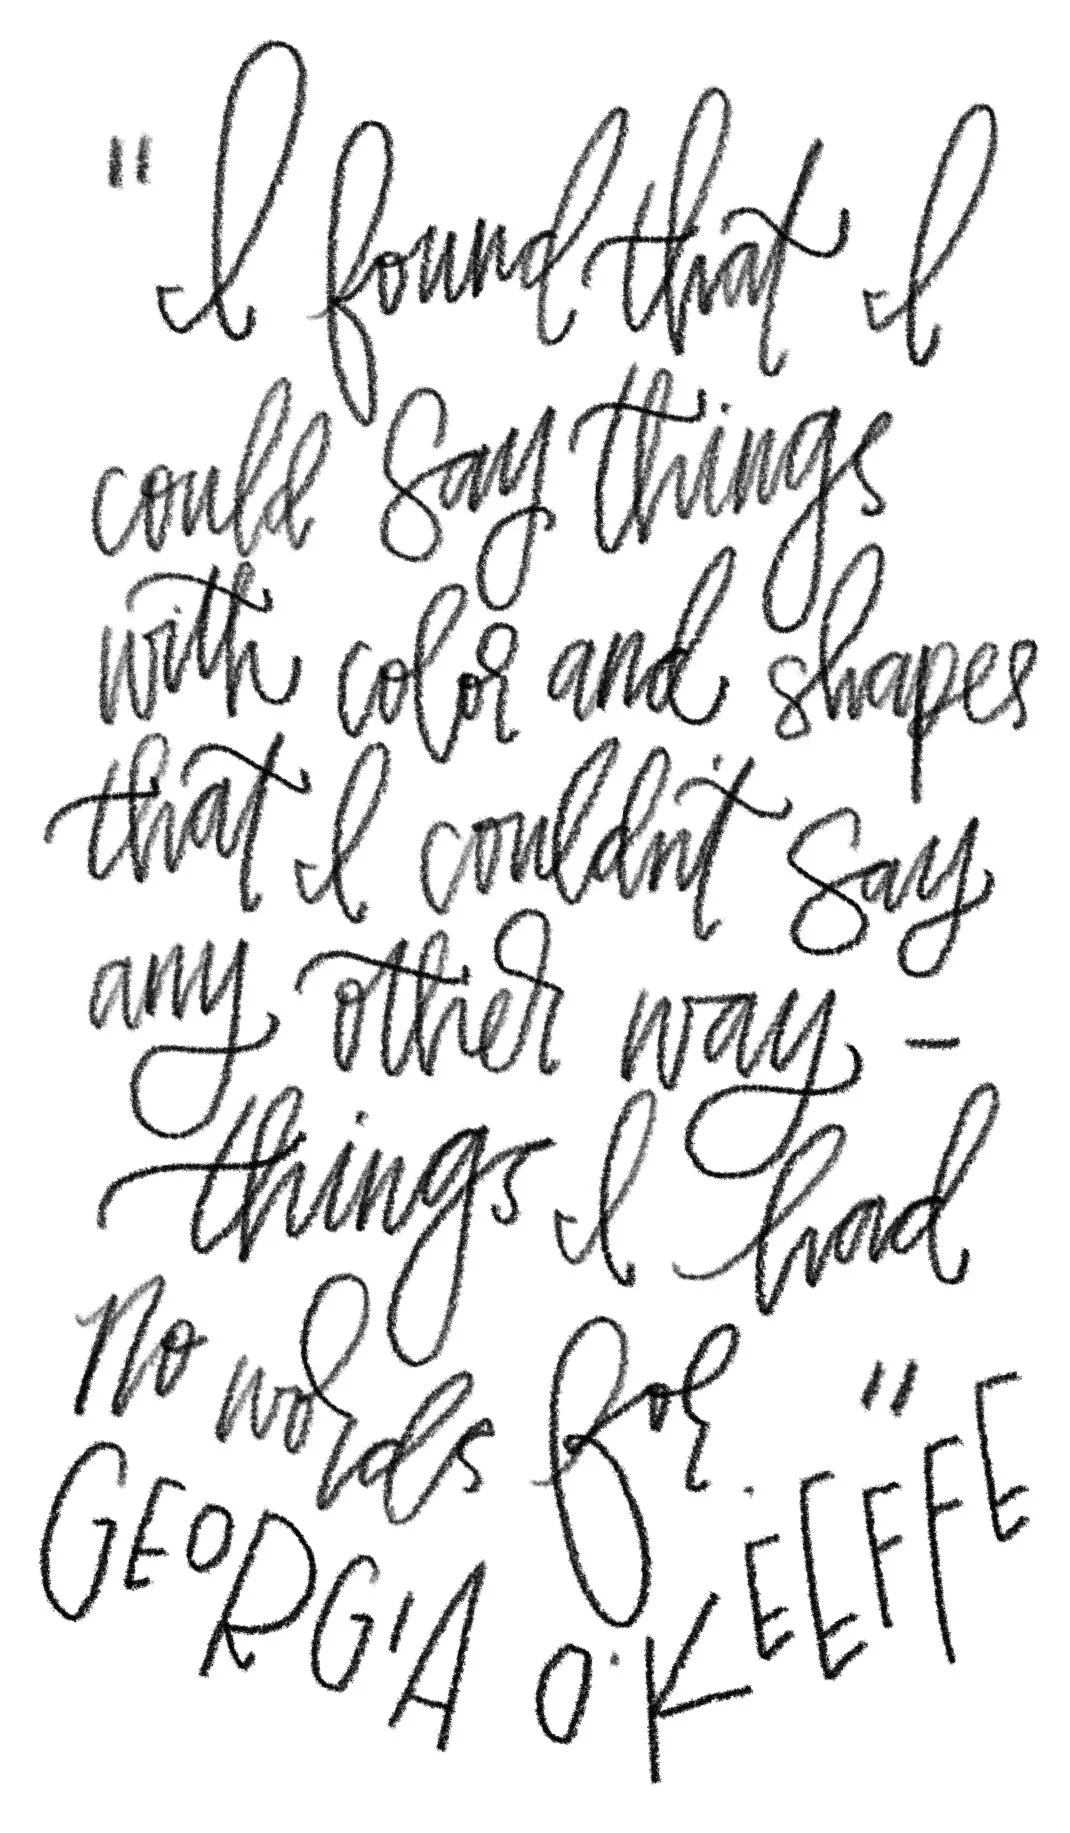 "I found that I
could say things
with color and shapes
that I couldn't say
any other way –
things I had
no words for."
GEORGIA O'KEEFFE